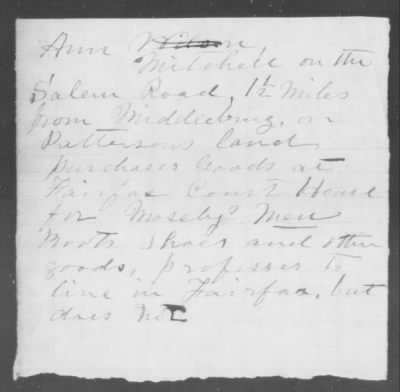 Ann Wilson,
Mitchell on the
Salem Road, 1½ Miles
from Middleburg, on
Pattersons land
purchases goods at
Fairfax Court House
for Mosebys Men
Boots Shoes and other
goods, professes to
live in Fairfax, but
does not